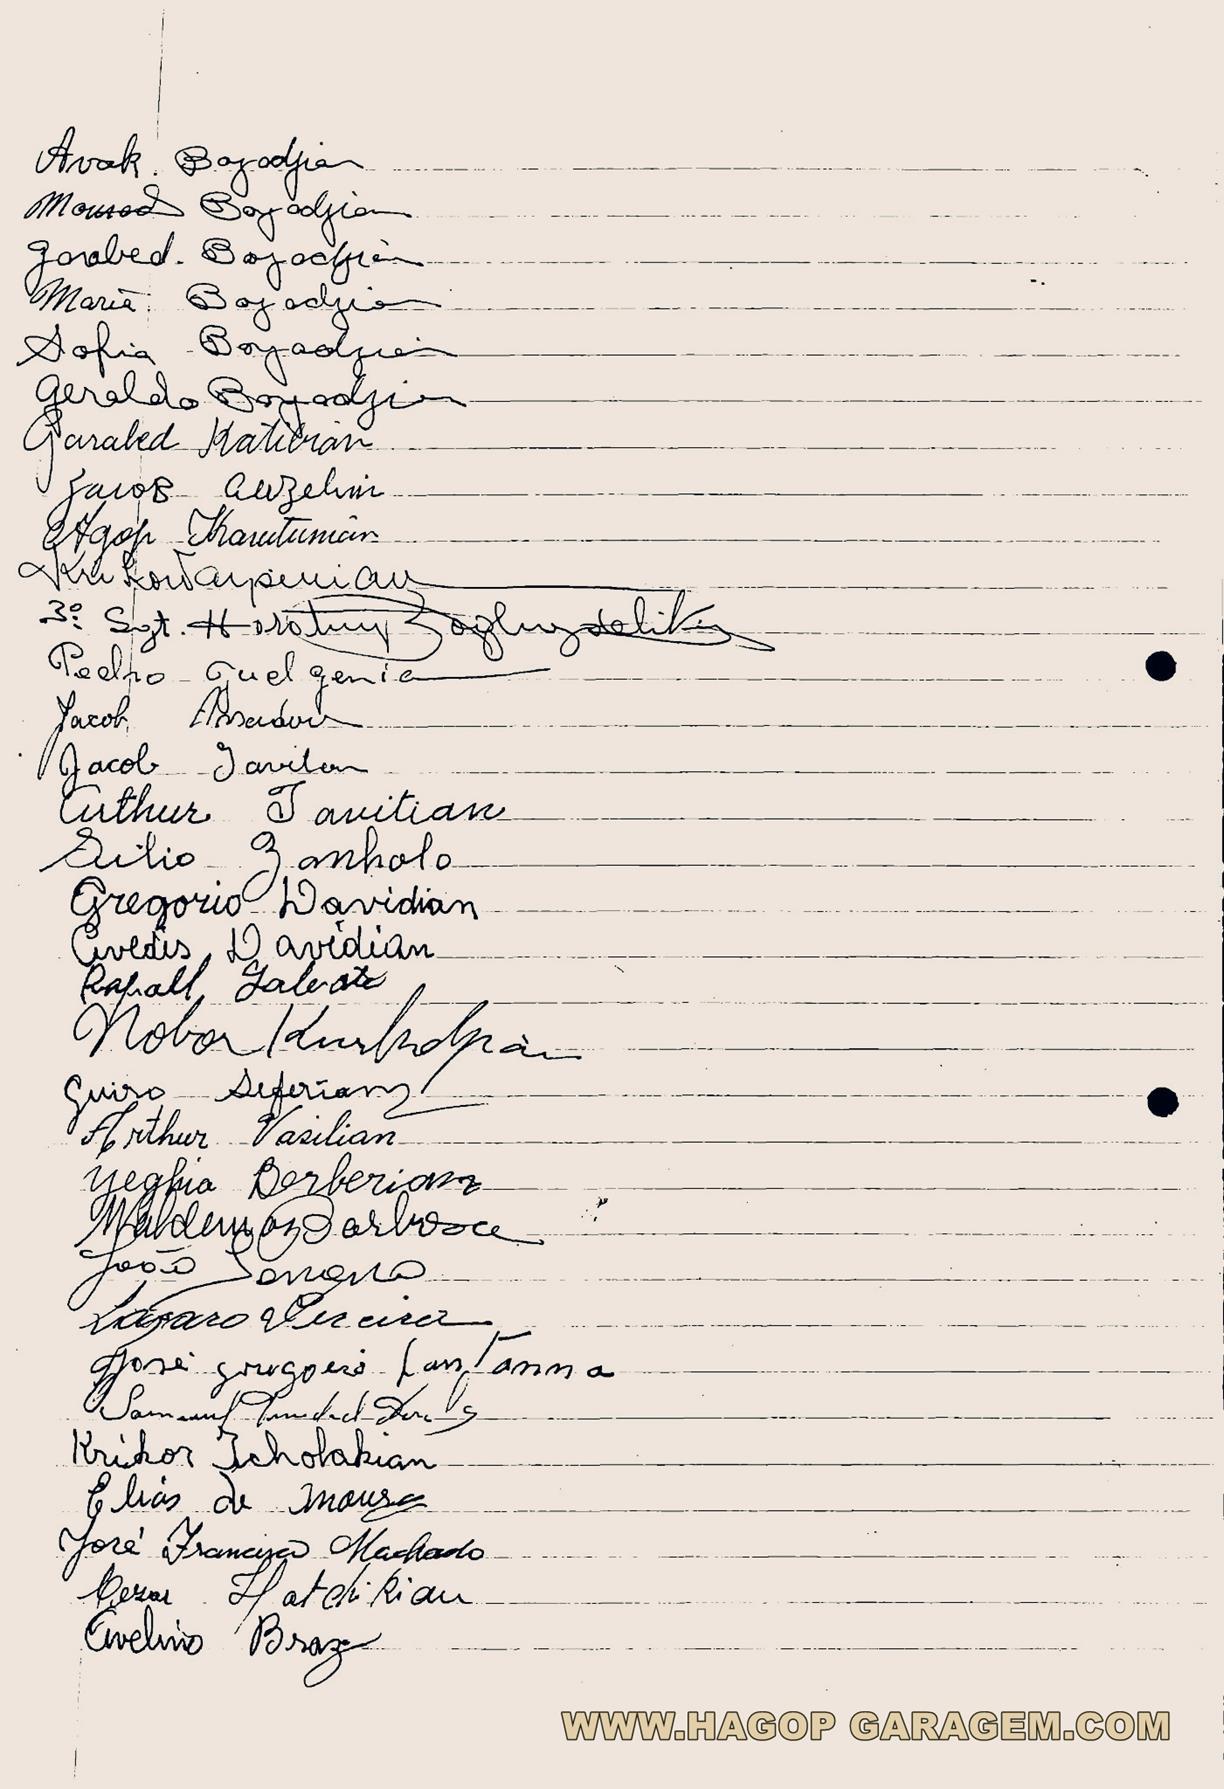 Avak. Boyadjian
Mourad Boyadjian
Garabed. Boyadjian
Maria Boyadjian
Sofia Boyadjian
Geraldo Boyadjian
Garabed Katibian
Jacob
Agop
Krikor
3º Sgt.
Pedro Guelgenia
Jacob
Jacob Tavitian
Arthur Tavitian
Zanholo
Gregorio Davidian
Avedis Davidian
Rafaell
Kurkdjian
Guiro Seferian
Arthur Vasilian
Yeghia Berberian
Waldemar Barbosa
João
Lázaro Pereira
José
Samuel
Krikor Tcholakian
Elias de Moura
José Francisco Machado
Cezar Hatchikian
Avelino Braz
WWW.HAGOP GARAGEM.COM